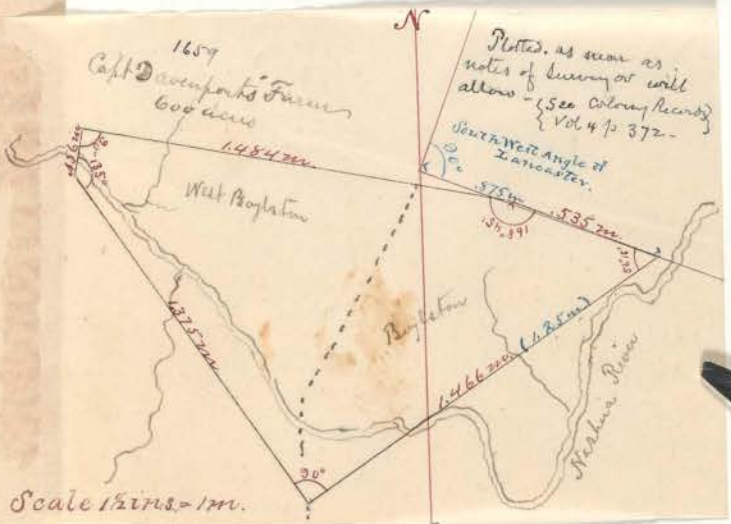 N
1659
Capt Davenports Farm
600 acres
Plotted, as near as
notes of Surveyor will
allow - {See Colony Records}
{Vol 4 p 372-
South West Angle of
Lancaster.
90°
1.484 m.
.356 m
135°
West Boylston
.575 m
.535 m
168°45'
Boylston
1.375 m
1.466 m. (1.25 m)
Nashua River
90°
Scale 1½ins = 1m.